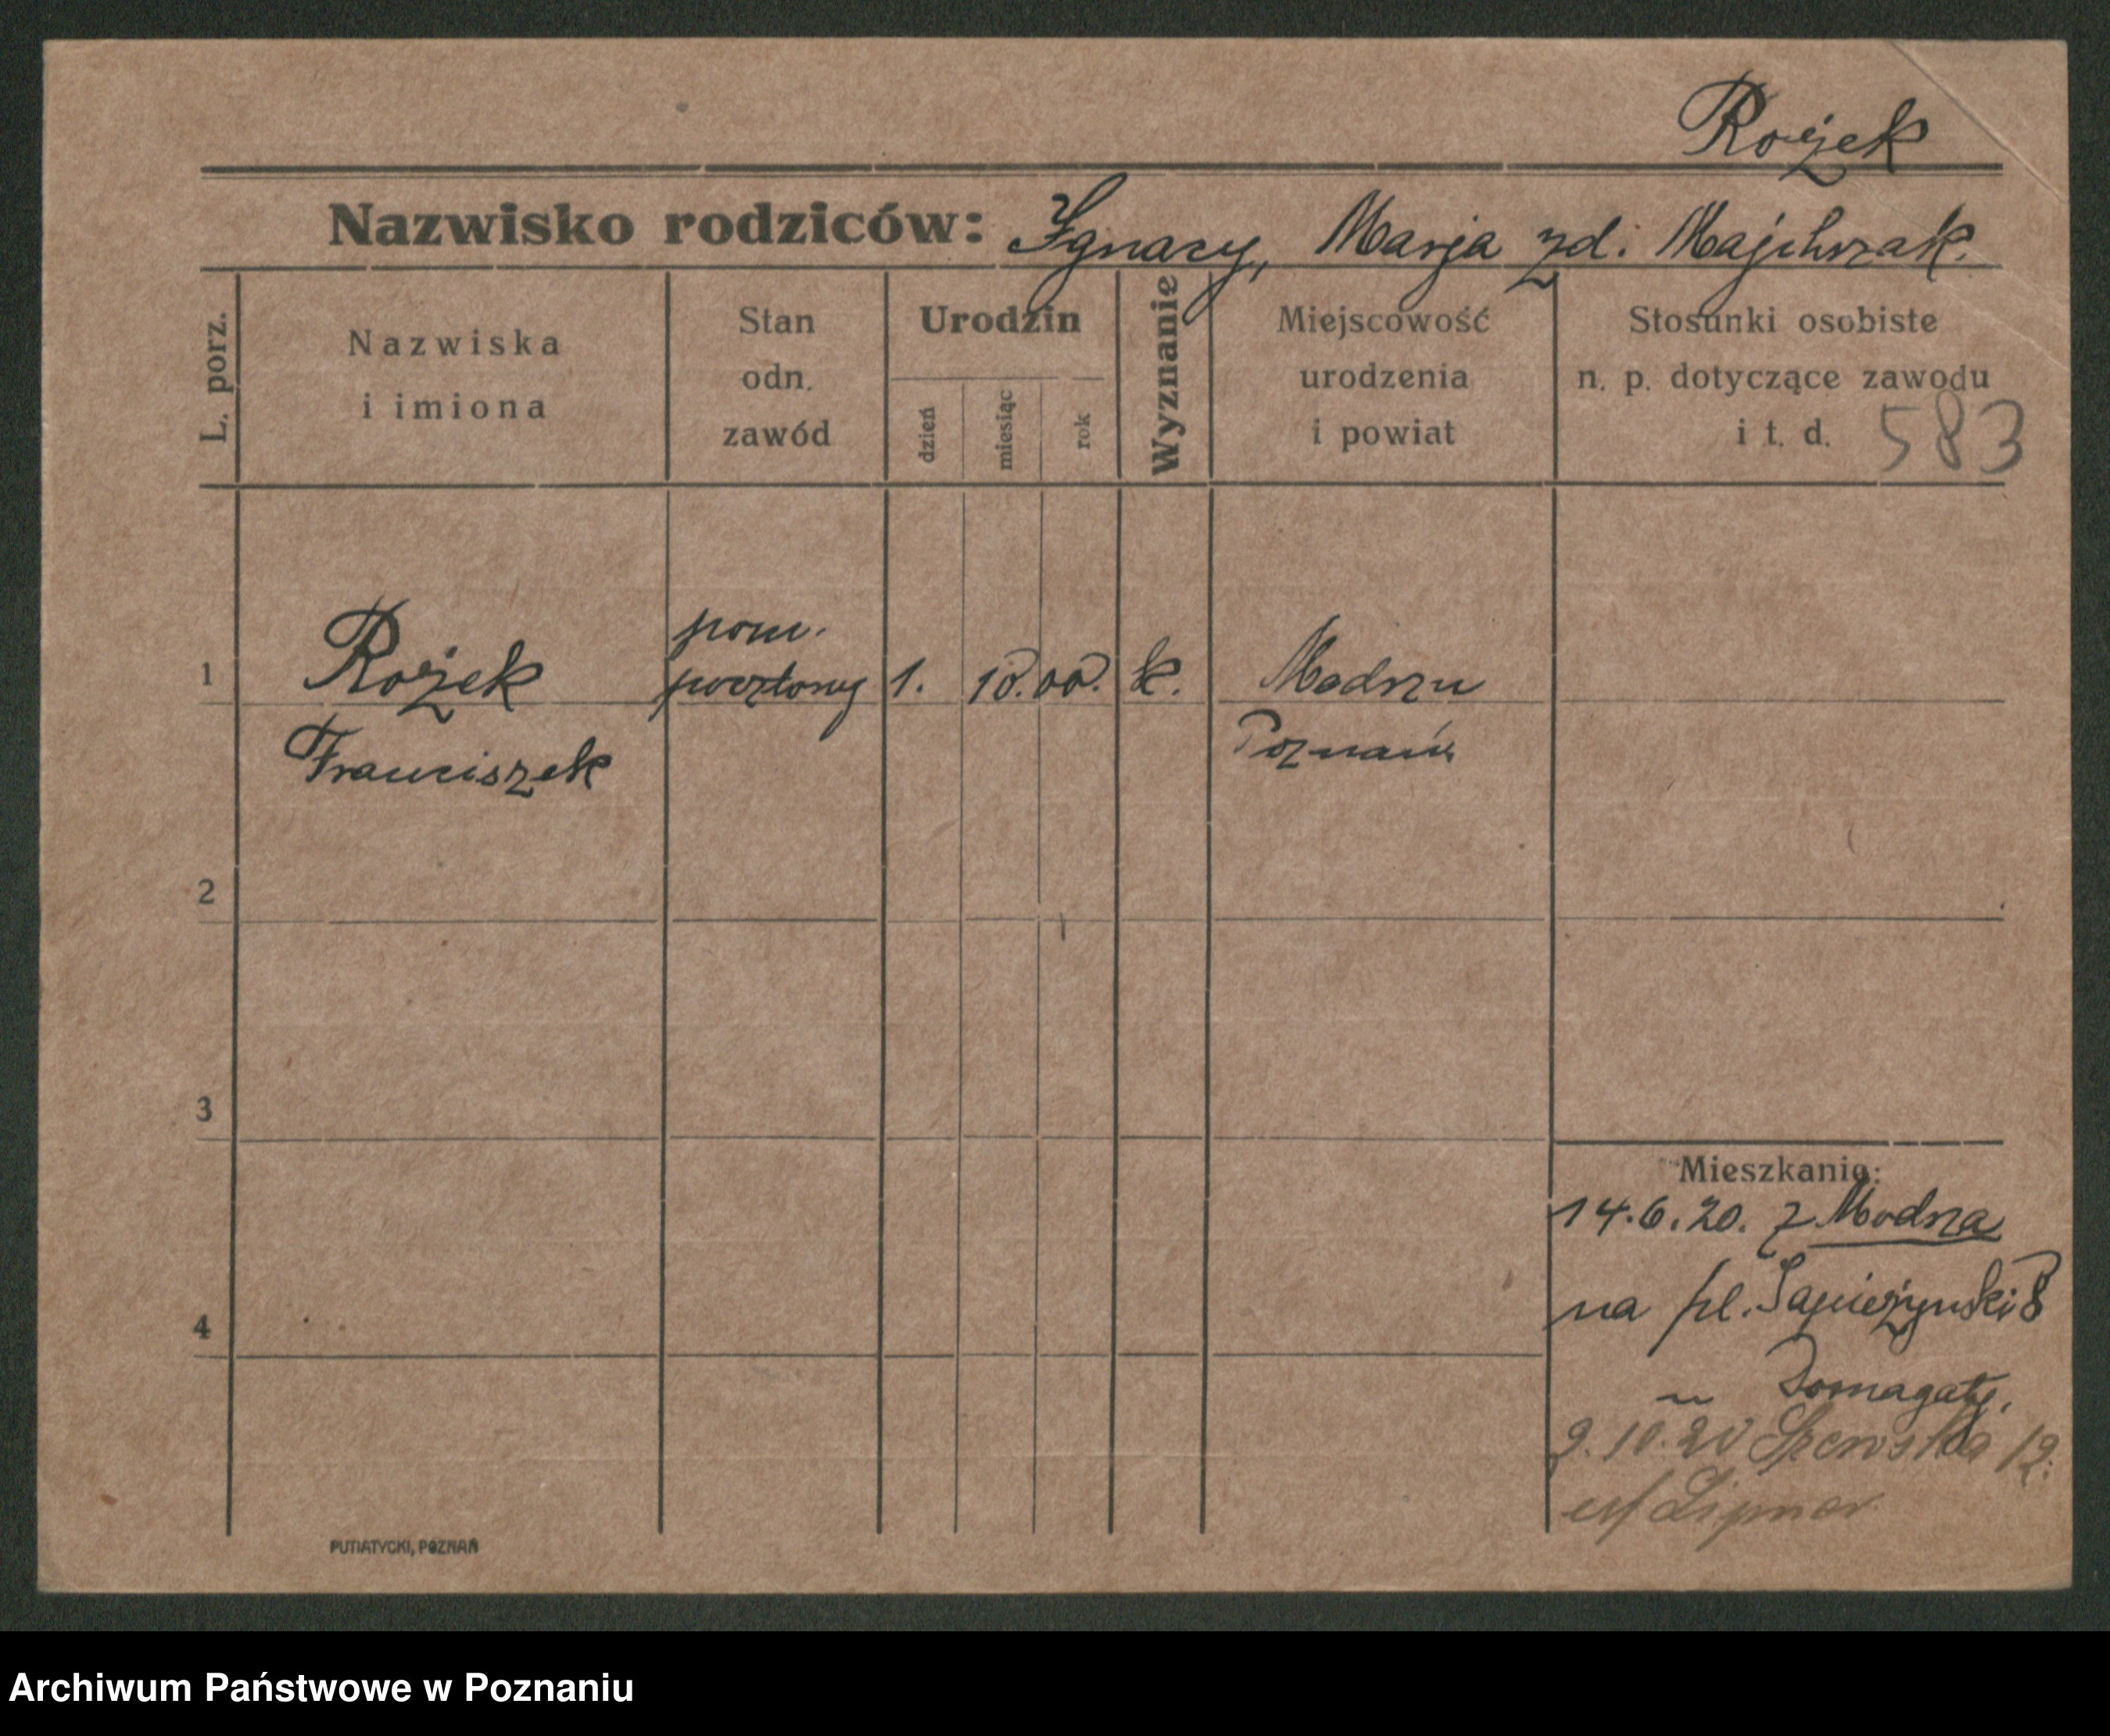 Rożek
Nazwisko rodziców: Ignacy, Marja zd. Majchrzak.
L. porz.
Nazwiska
i imiona
Stan
odn.
zawód
Urodzin
dzień
miesiąc
rok
Wyznanie
Miejscowość
urodzenia
i powiat
Stosunki osobiste
n. p. dotyczące zawodu
i t. d. 583
pom.
1 Rożek pocztowy 1. 10. 00. k. Modrzu
Franciszek Poznań
2
3
4
Mieszkanie:
14.6.20. z Modrza
na pl. Sapieżyński 8
u Domagały.
9.10.20 Szewska 12.
PUTIATYCKI, POZNAŃ
Archiwum Państwowe w Poznaniu